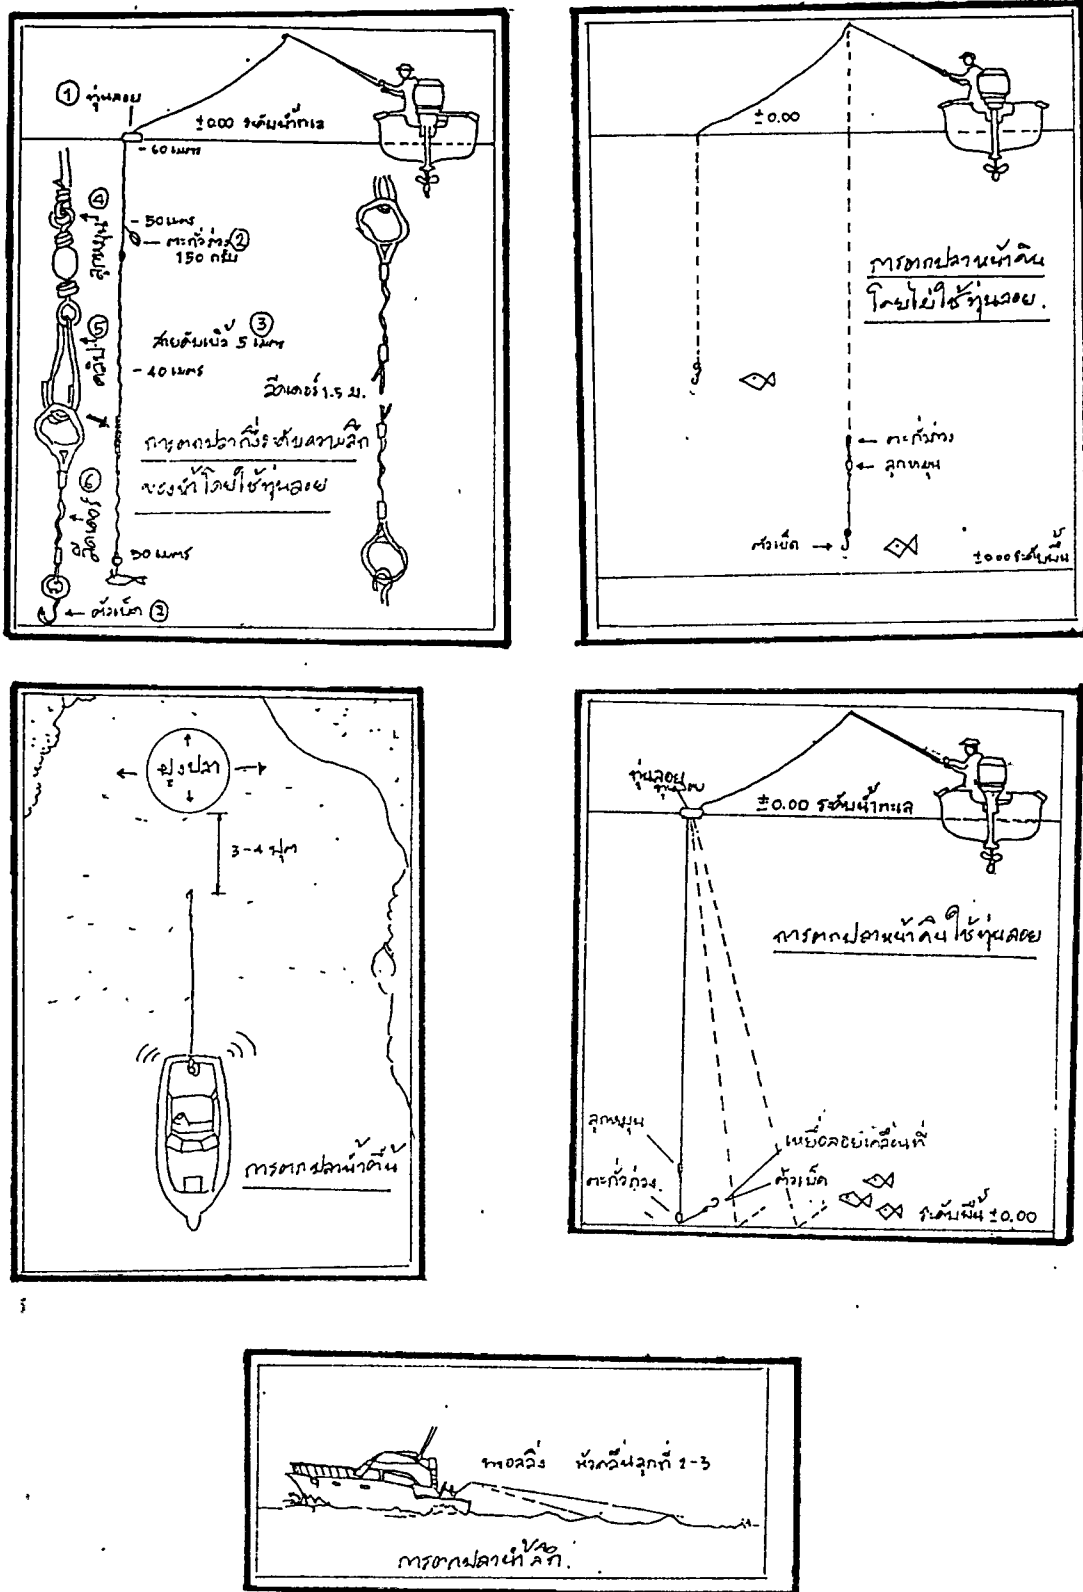 ① ทุ่นลอย
±0.00 ระดับน้ำทะเล
- 60 เมตร
④ ลูกหมุน
- 50 เมตร
ตะกั่วถ่วง ②
150 กรัม
⑤
สายดับเบิ้ล 5 เมตร ③
- 40 เมตร
ลีดเดอร์ 1.5 ม.
การตกปลากึ่งระดับความลึก
ของน้ำโดยใช้ทุ่นลอย
⑥ ลีดเดอร์
30 เมตร
ตัวเบ็ด
±0.00
การตกปลาหน้าดิน
โดยไม่ใช้ทุ่นลอย.
ตะกั่วถ่วง
ลูกหมุน
ตัวเบ็ด
±0.00 ระดับพื้น
ฝูงปลา
3-4 ฟุต
การตกปลาน้ำตื้น
ทุ่นลอย
±0.00 ระดับน้ำทะเล
การตกปลาหน้าดินใช้ทุ่นลอย
ลูกหมุน
เหยื่อลอยเคลื่อนที่
ตะกั่วถ่วง.
ตัวเบ็ด
ระดับพื้น ±0.00
ทรอลลิ่ง หัวคลื่นลูกที่ 2-3
การตกปลาน้ำลึก.